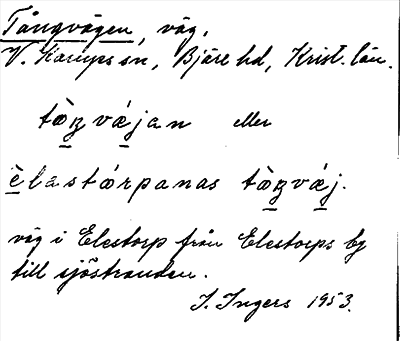 Tångvägen, väg,
V. Karups sn, Bjäre hd, Krist. län.
tà̱ŋvǽ̱jan eller
è̱lastárpanas tà̱ŋvǽ̱j.
väg i Elestorp från Elestorps by
till sjöstranden.
I. Ingers 1953.